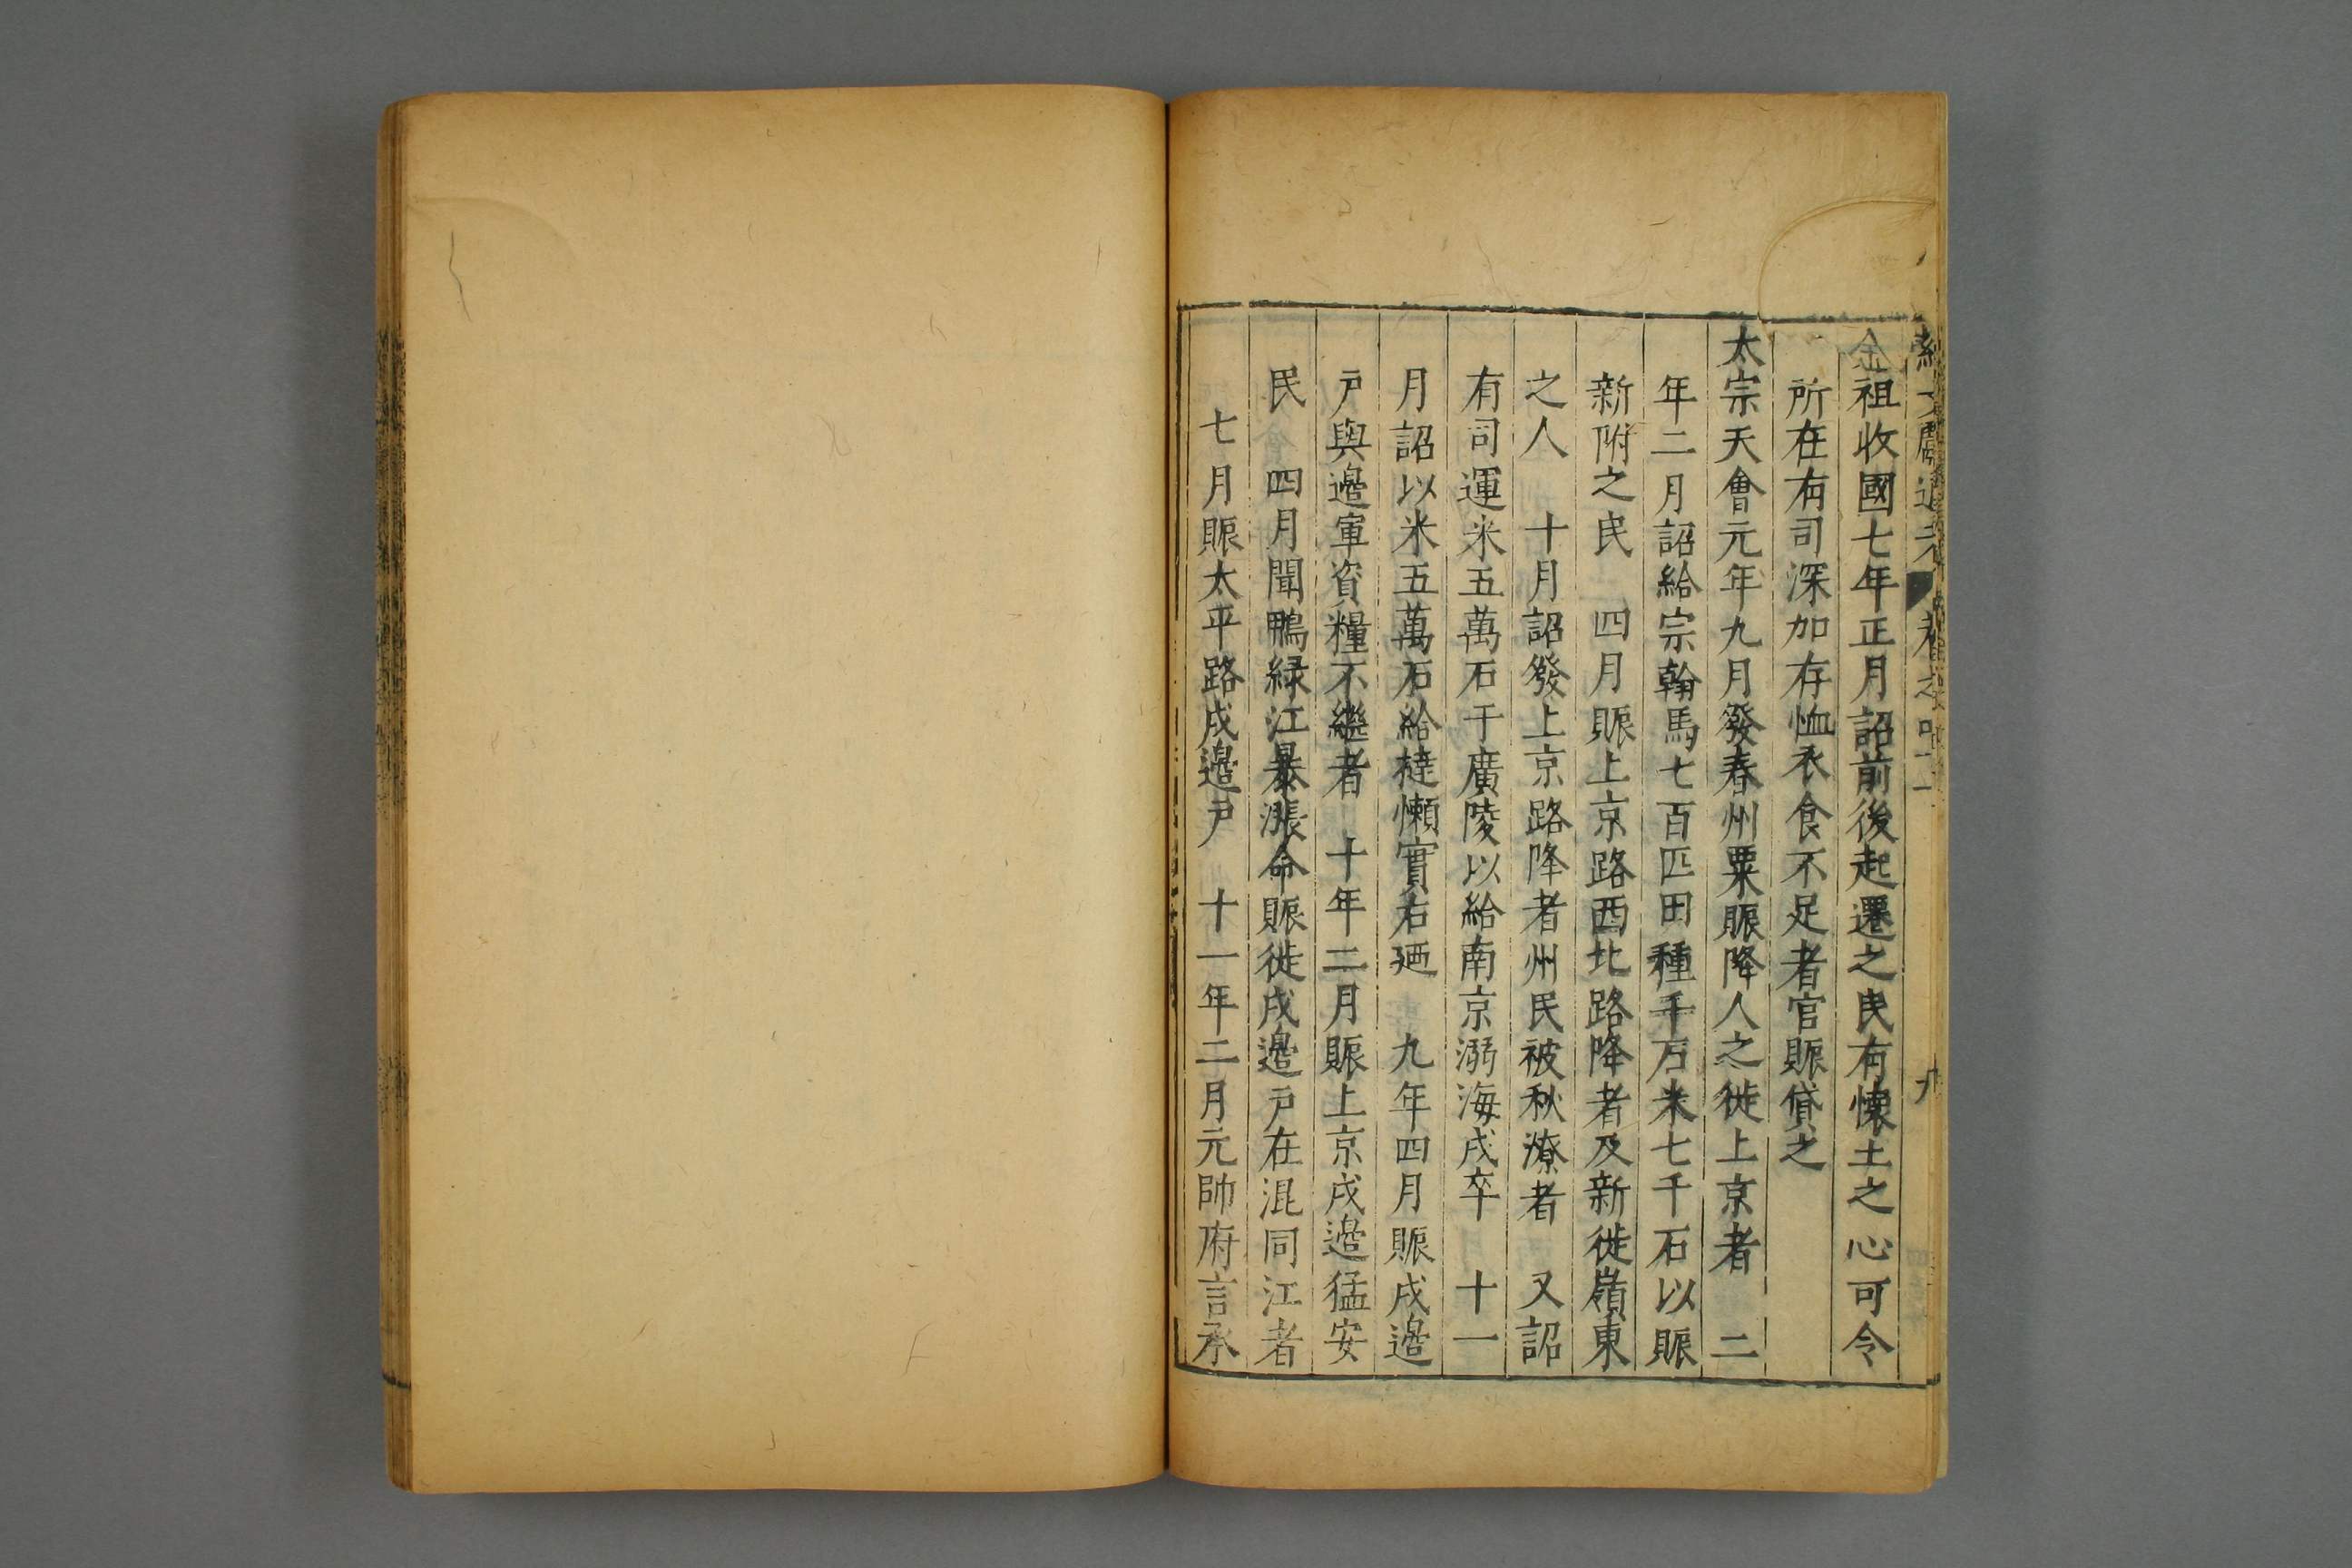 續文獻通考 卷之四十一 九
金祖收國七年正月詔前後起遷之民有懷土之心可令
所在有司深加存恤衣食不足者官賑貸之
太宗天會元年九月發春州粟賑降人之徙上京者 二
年二月詔給宗翰馬七百匹田種千石米七千石以賑
新附之民 四月賑上京路西北路降者及新徙嶺東
之人 十月詔發上京路降者州民被秋潦者 又詔
有司運米五萬石于廣陵以給南京溺海戍卒 十一
月詔以米五萬石給撻懶實右廼 九年四月賑戍邊
戶與邊軍資糧不繼者 十年二月賑上京戍邊猛安
民 四月聞鴨緑江暴漲命賑徙戍邊戶在混同江者
七月賑太平路戍邊戶 十一年二月元帥府言承